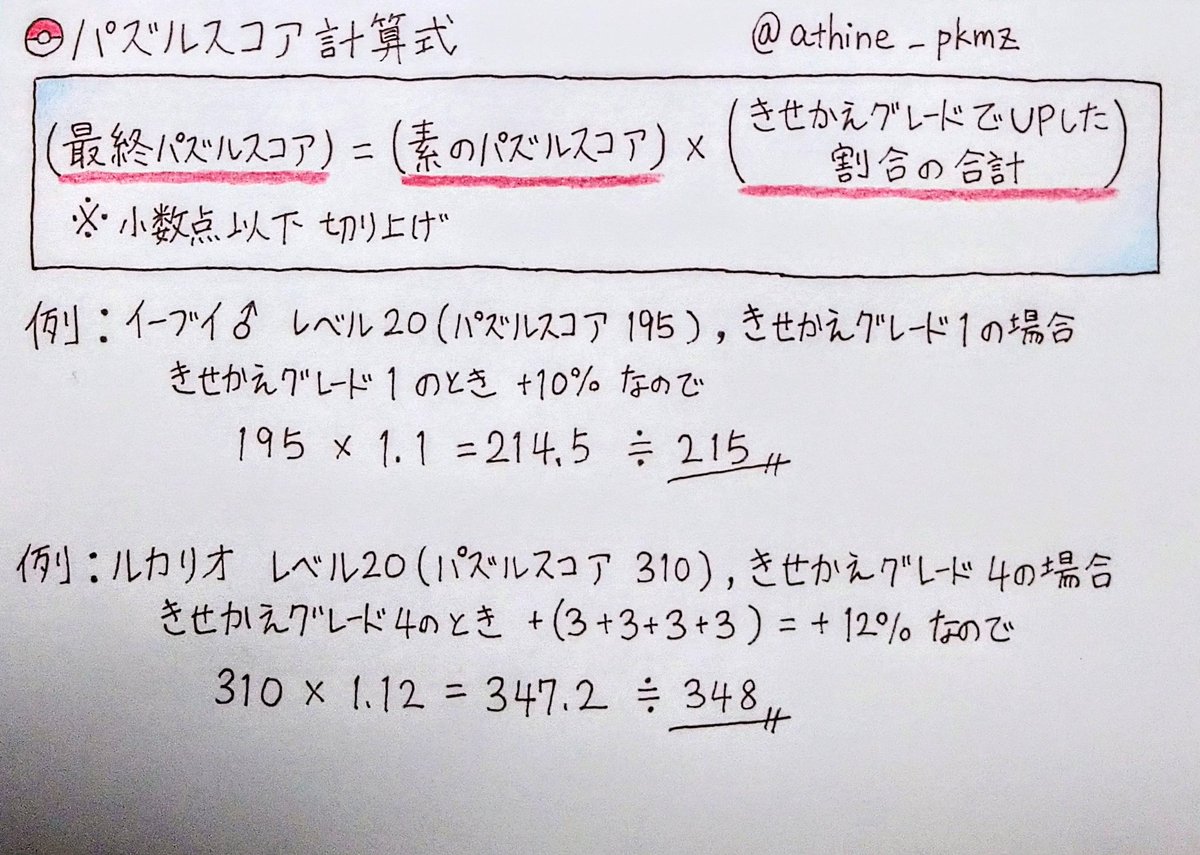 パズルスコア計算式 @athine_pkmz
(最終パズルスコア) = (素のパズルスコア) × (きせかえグレードでUPした割合の合計)
※小数点以下 切り上げ
例：イーブイ♂ レベル20(パズルスコア 195), きせかえグレード1の場合
きせかえグレード1のとき +10% なので
195 × 1.1 = 214.5 ≑ 215
例：ルカリオ レベル20(パズルスコア 310), きせかえグレード4の場合
きせかえグレード4のとき +(3+3+3+3) = +12% なので
310 × 1.12 = 347.2 ≑ 348